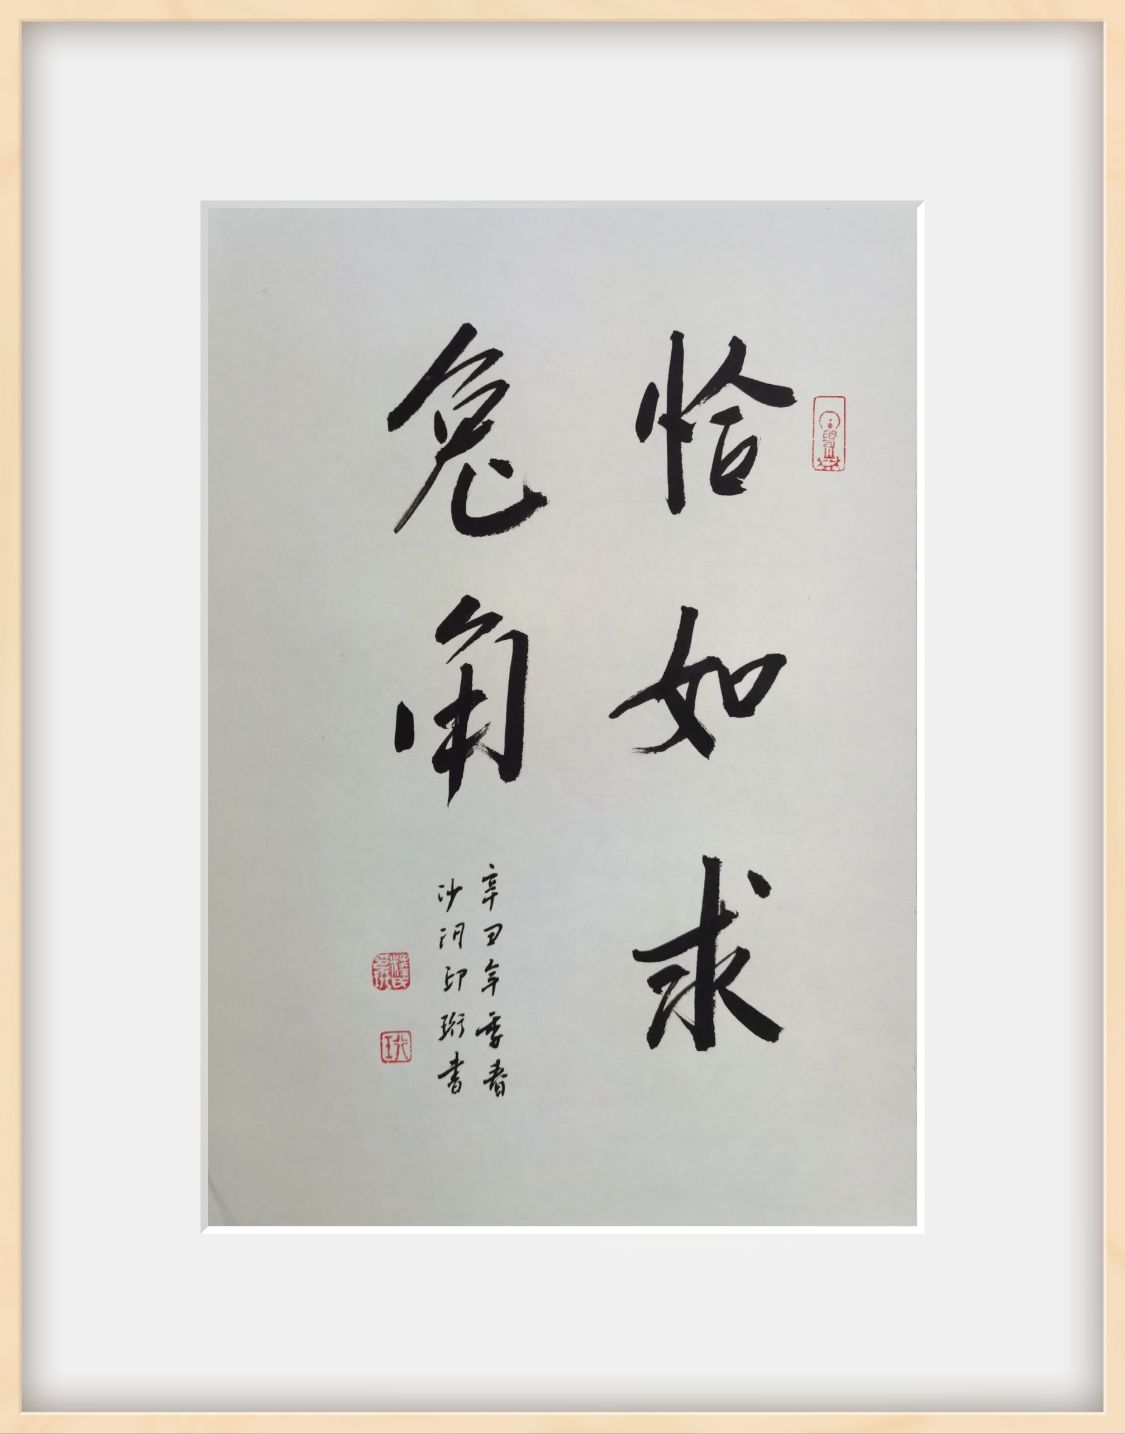 恰如求
兔角
辛丑年季春
沙门印珩书